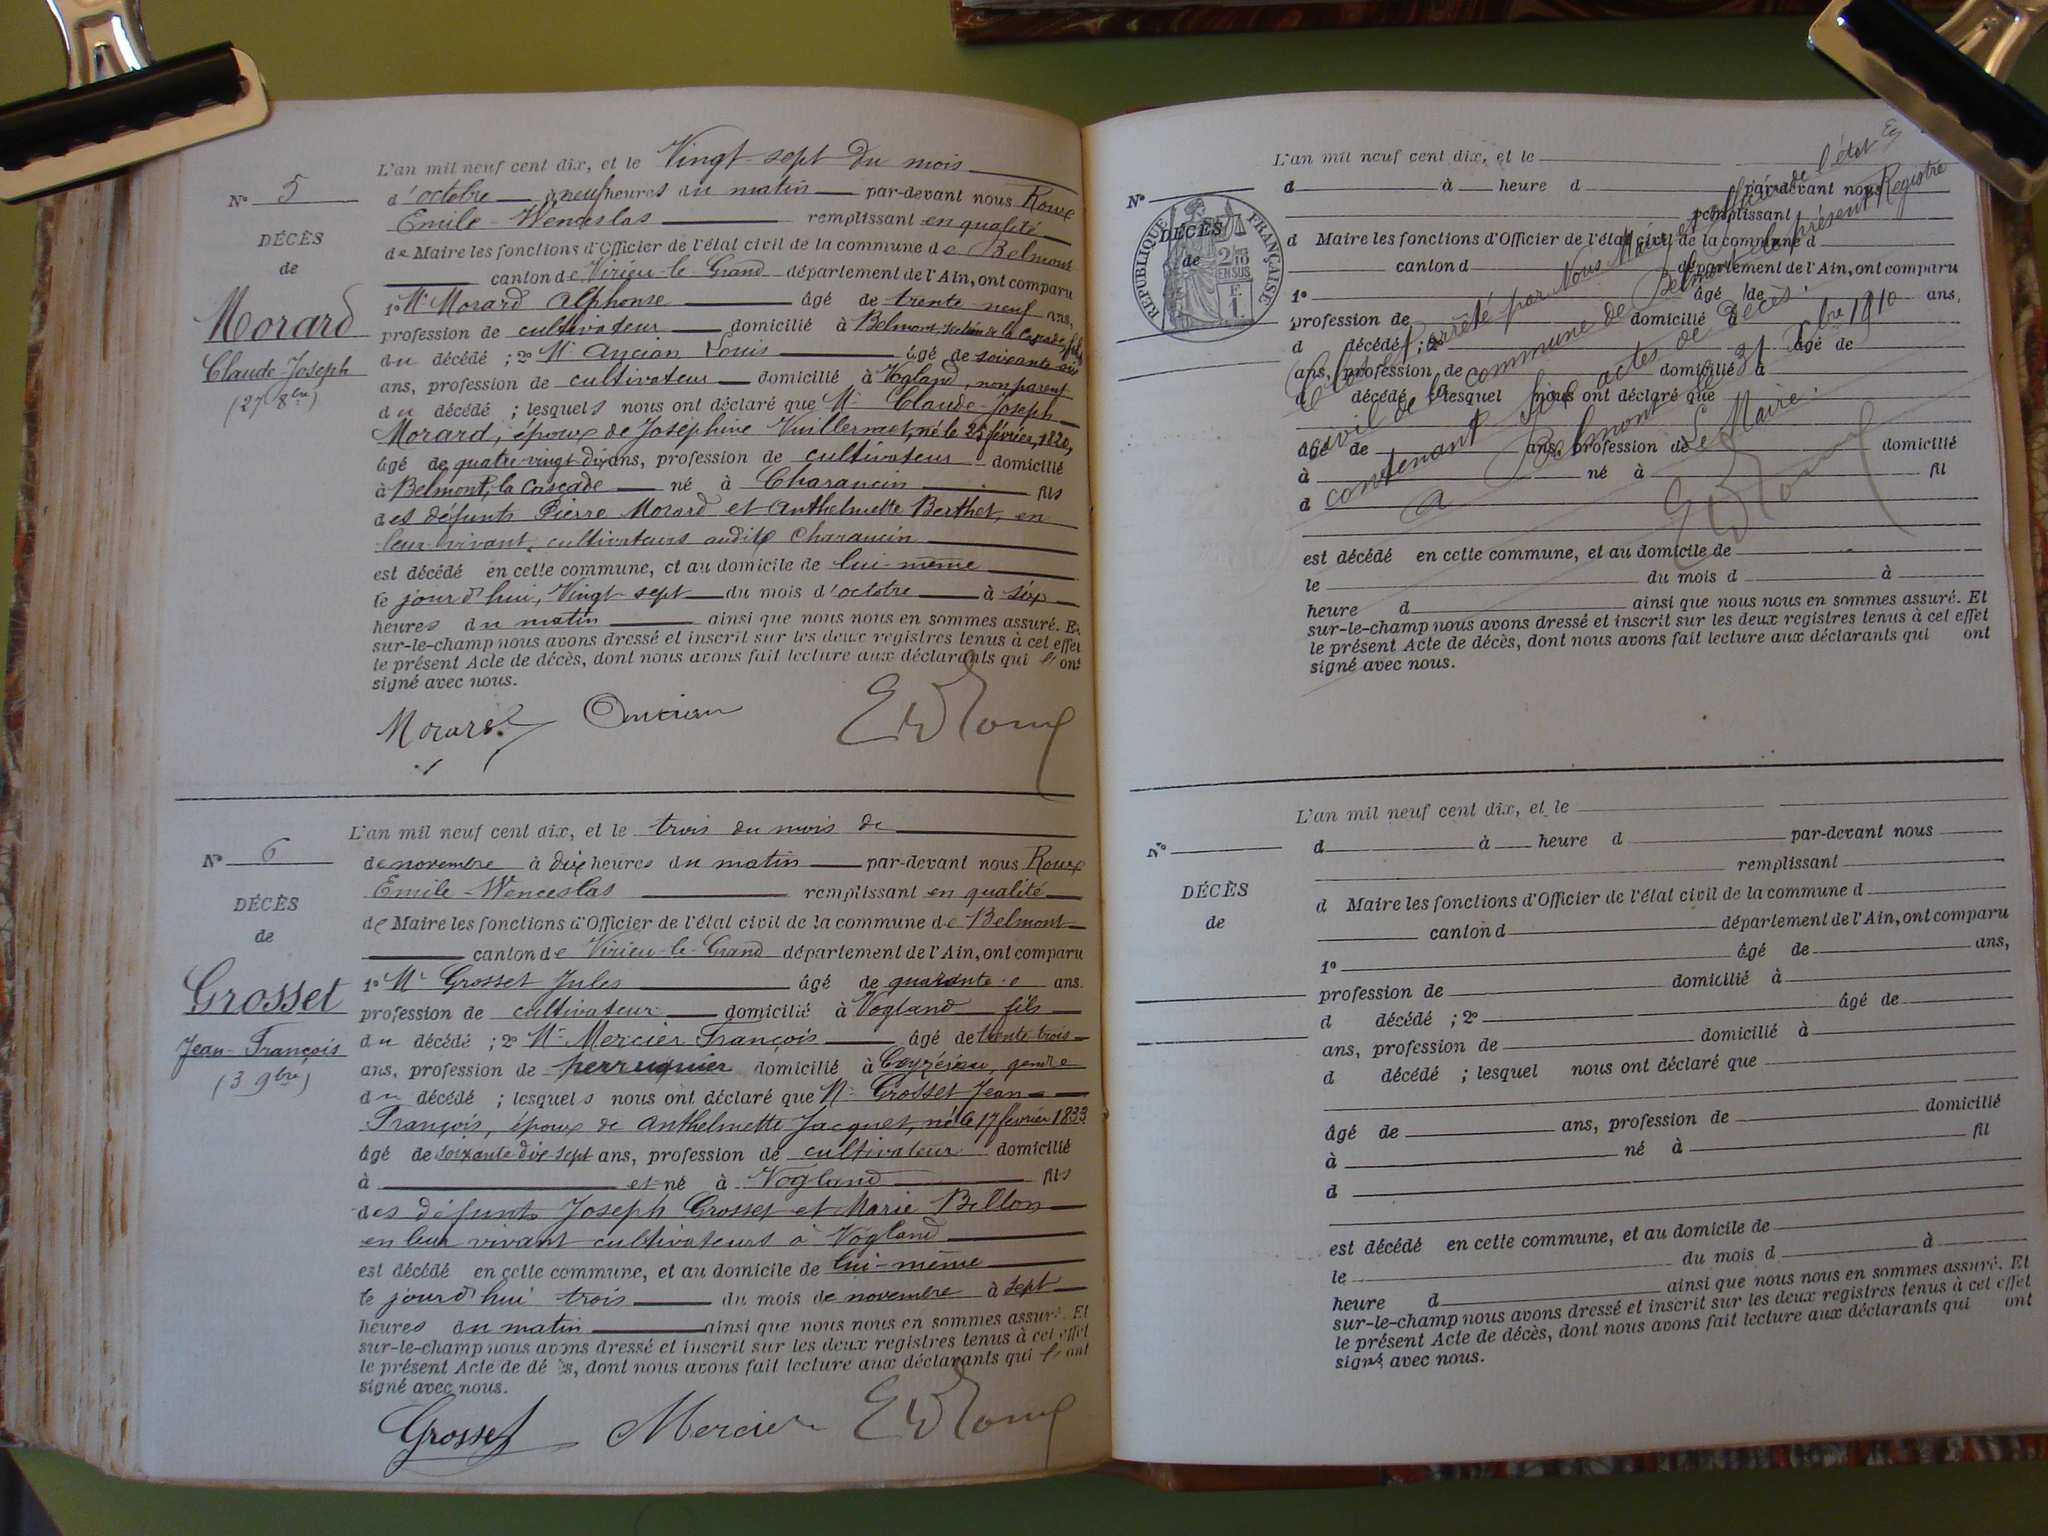 L'an mil neuf cent dix, et le Vingt-sept du mois
N° 5
d'octobre à neuf heures du matin par-devant nous Roux
Emile-Wenceslas remplissant en qualité
DÉCÈS
de Maire les fonctions d'Officier de l'état civil de la commune de Belmont
de
canton de Virieu-le-Grand département de l'Ain, ont comparu
Morard
1° Mr Morard Alphonse âgé de trente-neuf ans,
profession de cultivateur domicilié à Belmont, section de la Cascade, fils
Claude-Joseph
du décédé ; 2° Mr Ancian Louis âgé de soixante-six
(27 8bre)
ans, profession de cultivateur domicilié à Vogland, non parent
du décédé ; lesquels nous ont déclaré que Mr Claude-Joseph
Morard, époux de Joséphine Vuillermet, né le 25 février, 1820,
âgé de quatre-vingt-dix ans, profession de cultivateur domicilié
à Belmont, la Cascade né à Charancin fils
des défunts Pierre Morard et Anthelmette Berthet, en
leur vivant, cultivateurs audit Charancin
est décédé en cette commune, et au domicile de lui-même
le jourd'hui, Vingt-sept du mois d'octobre à six
heures du matin ainsi que nous nous en sommes assuré. Et
sur-le-champ nous avons dressé et inscrit sur les deux registres tenus à cet effet
le présent Acte de décès, dont nous avons fait lecture aux déclarants qui l'ont
signé avec nous.
Morard Ancian EWRoux
L'an mil neuf cent dix, et le trois du mois de
N° 6
de novembre à dix heures du matin par-devant nous Roux
Emile-Wenceslas remplissant en qualité
DÉCÈS
de Maire les fonctions d'Officier de l'état civil de la commune de Belmont
de
canton de Virieu-le-Grand département de l'Ain, ont comparu
Grosset
1° Mr Grosset Jules âgé de quarante ans.
profession de cultivateur domicilié à Vogland fils
Jean-François
du décédé ; 2° Mr Mercier François âgé de trente-trois
(3 9bre)
ans, profession de perruquier domicilié à Ceyzérieu, gendre
du décédé ; lesquels nous ont déclaré que Mr Grosset Jean-
François, époux de Anthelmette Jacquet, né le 17 février 1833
âgé de soixante-dix-sept ans, profession de cultivateur domicilié
à et né à Vogland fils
des défunts Joseph Grosset et Marie Billon
en leur vivant cultivateurs à Vogland
est décédé en cette commune, et au domicile de lui-même
le jourd'hui trois du mois de novembre à sept
heures du matin ainsi que nous nous en sommes assuré. Et
sur-le-champ nous avons dressé et inscrit sur les deux registres tenus à cet effet
le présent Acte de décès, dont nous avons fait lecture aux déclarants qui l'ont
signé avec nous.
Grosset Mercier EWRoux
L'an mil neuf cent dix, et le
N°
d à heure d par-devant nous
remplissant
RÉPUBLIQUE FRANÇAISE
2/10 EN SUS
F. 1
DÉCÈS
de
d Maire les fonctions d'Officier de l'état civil de la commune d
canton d département de l'Ain, ont comparu
1° âgé de ans,
profession de domicilié à
d décédé ; 2° âgé de
ans, profession de domicilié à
d décédé ; lesquel nous ont déclaré que
âgé de ans, profession de domicilié
à né à fil
d
Clos et arrêté par Nous Maire et officier de l'état
civil de la commune de Belmont le présent Registre
contenant six actes de Décès.
A Belmont le 31 Xbre 1910
Le Maire.
EWRoux
est décédé en cette commune, et au domicile de
le du mois d à
heure d ainsi que nous nous en sommes assuré. Et
sur-le-champ nous avons dressé et inscrit sur les deux registres tenus à cet effet
le présent Acte de décès, dont nous avons fait lecture aux déclarants qui ont
signé avec nous.
L'an mil neuf cent dix, et le
N°
d à heure d par-devant nous
remplissant
DÉCÈS
d Maire les fonctions d'Officier de l'état civil de la commune d
de
canton d département de l'Ain, ont comparu
1° âgé de ans,
profession de domicilié à
d décédé ; 2° âgé de
ans, profession de domicilié à
d décédé ; lesquel nous ont déclaré que
âgé de ans, profession de domicilié
à né à fil
d
est décédé en cette commune, et au domicile de
le du mois d à
heure d ainsi que nous nous en sommes assuré. Et
sur-le-champ nous avons dressé et inscrit sur les deux registres tenus à cet effet
le présent Acte de décès, dont nous avons fait lecture aux déclarants qui ont
signé avec nous.